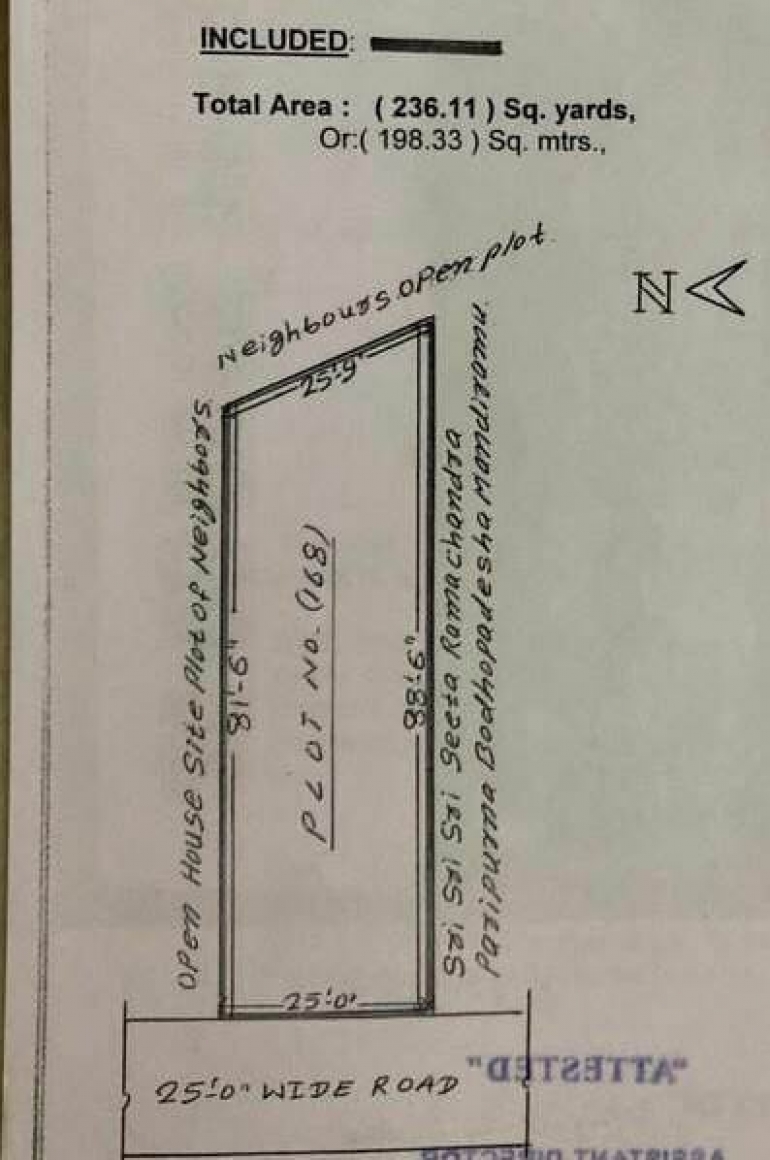 INCLUDED:
Total Area : ( 236.11 ) Sq. yards,
Or:( 198.33 ) Sq. mtrs.,
N
Neighbours open plot
25'-9"
Open House Site Plot of Neighbors.
81'-6"
PLOT NO. (168)
88'-6"
Sri Sri Sri Seeta Ramachandra
Paripurna Bodhopadesha Mandiramu.
25'-0"
25'-0" WIDE ROAD
"ATTESTED"
ASSISTANT DIRECTOR